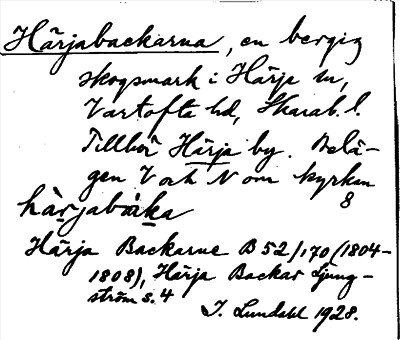 Härjabackarna, en bergig
skogsmark i Härja sn,
Vartofta hd, Skarab. l.
Tillhör Härja by. Belä-
gen V och N om kyrkan
8
hàrjabàka
Härja Backarne B 52/170 (1804-
1808), Härja Backar Ljung-
ström s. 4
I. Lundahl 1928.